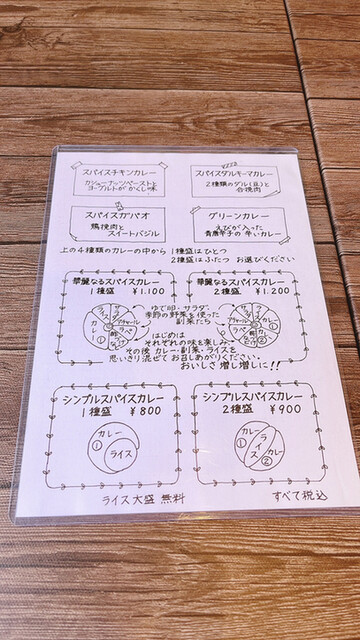 スパイスチキンカレー
カシューナッツペーストと
ヨーグルトがかくし味
スパイスダルキーマカレー
2種類のダル(豆)と
合挽肉
スパイスガパオ
鶏挽肉と
スイートバジル
グリーンカレー
えびが入った
青唐辛子の辛いカレー
上の4種類のカレーの中から 1種盛はひとつ
2種盛はふたつ お選びください
華麗なるスパイスカレー
1種盛 ¥1.100
華麗なるスパイスカレー
2種盛 ¥1.200
ゆで卵・サラダ・
季節の野菜を使った
副菜たち
はじめは
それぞれの味を楽しみ
その後 カレー・副菜・ライスを
思いきり混ぜてお召しあがりください。
おいしさ増し増しに!!
カレー
①
シンプルスパイスカレー
1種盛 ¥800
カレー
①
ライス
シンプルスパイスカレー
2種盛 ¥900
カレー
①
ライス
カレー
②
ライス大盛 無料
すべて税込